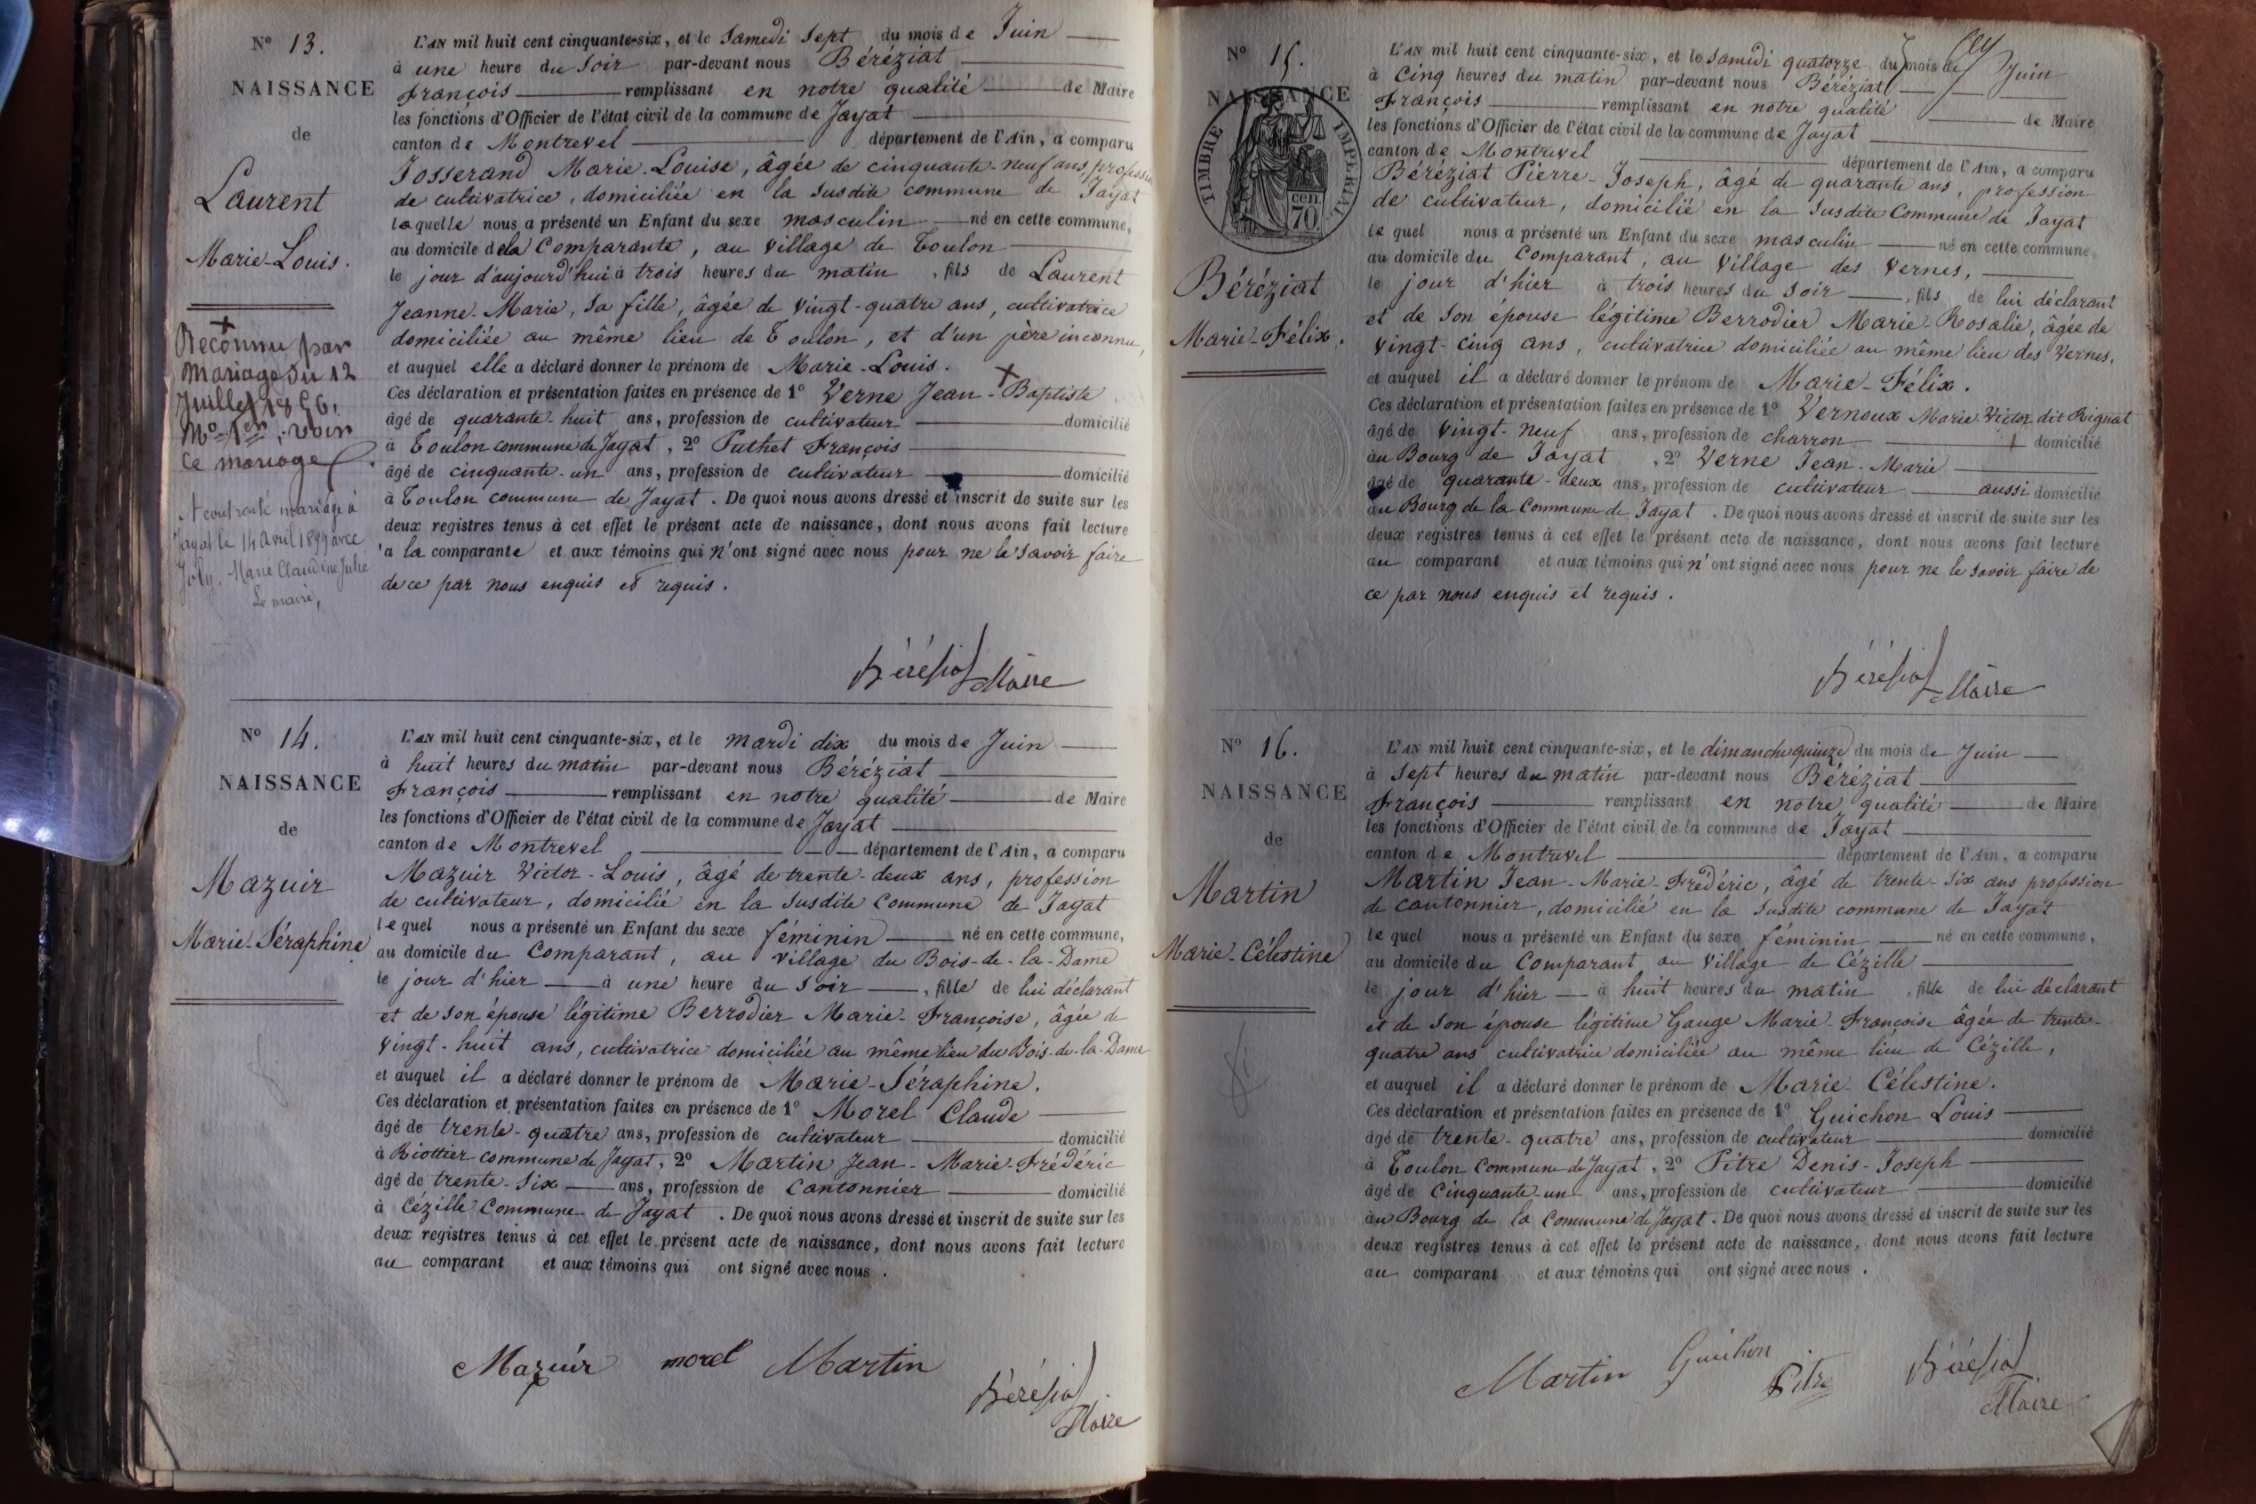 N° 13.
NAISSANCE
de
Laurent
Marie-Louis.
Reconnu par
mariage du 12
Juillet 1856,
N° 1er, voir
ce mariage
A contracté mariage à
Jayat le 14 avril 1899 avec
Joly, Marie Claudine Julie
Le maire,
L'AN mil huit cent cinquante-six, et le Samedi Sept du mois de Juin
à une heure du Soir par-devant nous Béréziat
François remplissant en notre qualité de Maire
les fonctions d'Officier de l'état civil de la commune de Jayat
canton de Montrevel département de l'Ain, a comparu
Josserand Marie-Louise, âgée de cinquante-neuf ans, profession
de cultivatrice, domiciliée en la susdite commune de Jayat
laquelle nous a présenté un Enfant du sexe masculin né en cette commune,
au domicile de la Comparante, au village de Toulon
le jour d'aujourd'hui à trois heures du matin, fils de Laurent
Jeanne-Marie, sa fille, âgée de vingt-quatre ans, cultivatrice
domiciliée au même lieu de Toulon, et d'un père inconnu,
et auquel elle a déclaré donner le prénom de Marie-Louis.
Ces déclaration et présentation faites en présence de 1° Verne Jean-Baptiste
âgé de quarante-huit ans, profession de cultivateur domicilié
à Toulon commune de Jayat, 2° Puthet François
âgé de cinquante-un ans, profession de cultivateur domicilié
à Toulon commune de Jayat. De quoi nous avons dressé et inscrit de suite sur les
deux registres tenus à cet effet le présent acte de naissance, dont nous avons fait lecture
à la comparante et aux témoins qui n'ont signé avec nous pour ne le savoir faire
de ce par nous enquis et requis.
Béréziat Maire
N° 14.
NAISSANCE
de
Mazuir
Marie-Séraphine
L'AN mil huit cent cinquante-six, et le mardi dix du mois de Juin
à huit heures du matin par-devant nous Béréziat
François remplissant en notre qualité de Maire
les fonctions d'Officier de l'état civil de la commune de Jayat
canton de Montrevel département de l'Ain, a comparu
Mazuir Victor-Louis, âgé de trente-deux ans, profession
de cultivateur, domicilié en la susdite commune de Jayat
lequel nous a présenté un Enfant du sexe féminin né en cette commune,
au domicile du Comparant, au village du Bois-de-la-Dame
le jour d'hier à une heure du soir, fille de lui déclarant
et de son épouse légitime Berrodier Marie-Françoise, âgée de
vingt-huit ans, cultivatrice domiciliée au même lieu du Bois-de-la-Dame
et auquel il a déclaré donner le prénom de Marie-Séraphine.
Ces déclaration et présentation faites en présence de 1° Morel Claude
âgé de trente-quatre ans, profession de cultivateur domicilié
à Riottier commune de Jayat, 2° Martin Jean-Marie-Frédéric
âgé de trente-six ans, profession de cantonnier domicilié
à Cézille Commune de Jayat. De quoi nous avons dressé et inscrit de suite sur les
deux registres tenus à cet effet le présent acte de naissance, dont nous avons fait lecture
au comparant et aux témoins qui ont signé avec nous.
Mazuir morel Martin
Béréziat
Maire
N° 15.
NAISSANCE
TIMBRE IMPERIAL
CEN.
70
Béréziat
Marie-Félix.
L'AN mil huit cent cinquante-six, et le samedi quatorze du mois de Juin
à Cinq heures du matin par-devant nous Béréziat
François remplissant en notre qualité de Maire
les fonctions d'Officier de l'état civil de la commune de Jayat
canton de Montrevel département de l'Ain, a comparu
Béréziat Pierre-Joseph, âgé de quarante ans, profession
de cultivateur, domicilié en la susdite Commune de Jayat
lequel nous a présenté un Enfant du sexe masculin né en cette commune,
au domicile du Comparant, au village des Vernes,
le jour d'hier à trois heures du soir, fils de lui déclarant
et de son épouse légitime Berrodier Marie-Rosalie, âgée de
vingt-cinq ans, cultivatrice domiciliée au même lieu des Vernes,
et auquel il a déclaré donner le prénom de Marie-Félix.
Ces déclaration et présentation faites en présence de 1° Vernoux Marie Victor dit Rignat
âgé de vingt-neuf ans, profession de charron domicilié
au Bourg de Jayat, 2° Verne Jean-Marie
âgé de quarante-deux ans, profession de cultivateur aussi domicilié
au Bourg de la Commune de Jayat. De quoi nous avons dressé et inscrit de suite sur les
deux registres tenus à cet effet le présent acte de naissance, dont nous avons fait lecture
au comparant et aux témoins qui n'ont signé avec nous pour ne le savoir faire de
ce par nous enquis et requis.
Béréziat Maire
N° 16.
NAISSANCE
de
Martin
Marie-Célestine
L'AN mil huit cent cinquante-six, et le dimanche quinze du mois de Juin
à sept heures du matin par-devant nous Béréziat
François remplissant en notre qualité de Maire
les fonctions d'Officier de l'état civil de la commune de Jayat
canton de Montrevel département de l'Ain, a comparu
Martin Jean-Marie-Frédéric, âgé de trente-six ans profession
de cantonnier, domicilié en la susdite commune de Jayat
lequel nous a présenté un Enfant du sexe féminin né en cette commune,
au domicile du Comparant au village de Cézille
le jour d'hier à huit heures du matin, fille de lui déclarant
et de son épouse légitime Gauge Marie-Françoise âgée de trente-
quatre ans cultivatrice domiciliée au même lieu de Cézille,
et auquel il a déclaré donner le prénom de Marie-Célestine.
Ces déclaration et présentation faites en présence de 1° Guichon Louis
âgé de trente-quatre ans, profession de cultivateur domicilié
à Toulon Commune de Jayat, 2° Pitre Denis-Joseph
âgé de Cinquante-un ans, profession de cultivateur domicilié
au Bourg de la Commune de Jayat. De quoi nous avons dressé et inscrit de suite sur les
deux registres tenus à cet effet le présent acte de naissance, dont nous avons fait lecture
au comparant et aux témoins qui ont signé avec nous.
Martin Guichon Pitre Béréziat
Maire